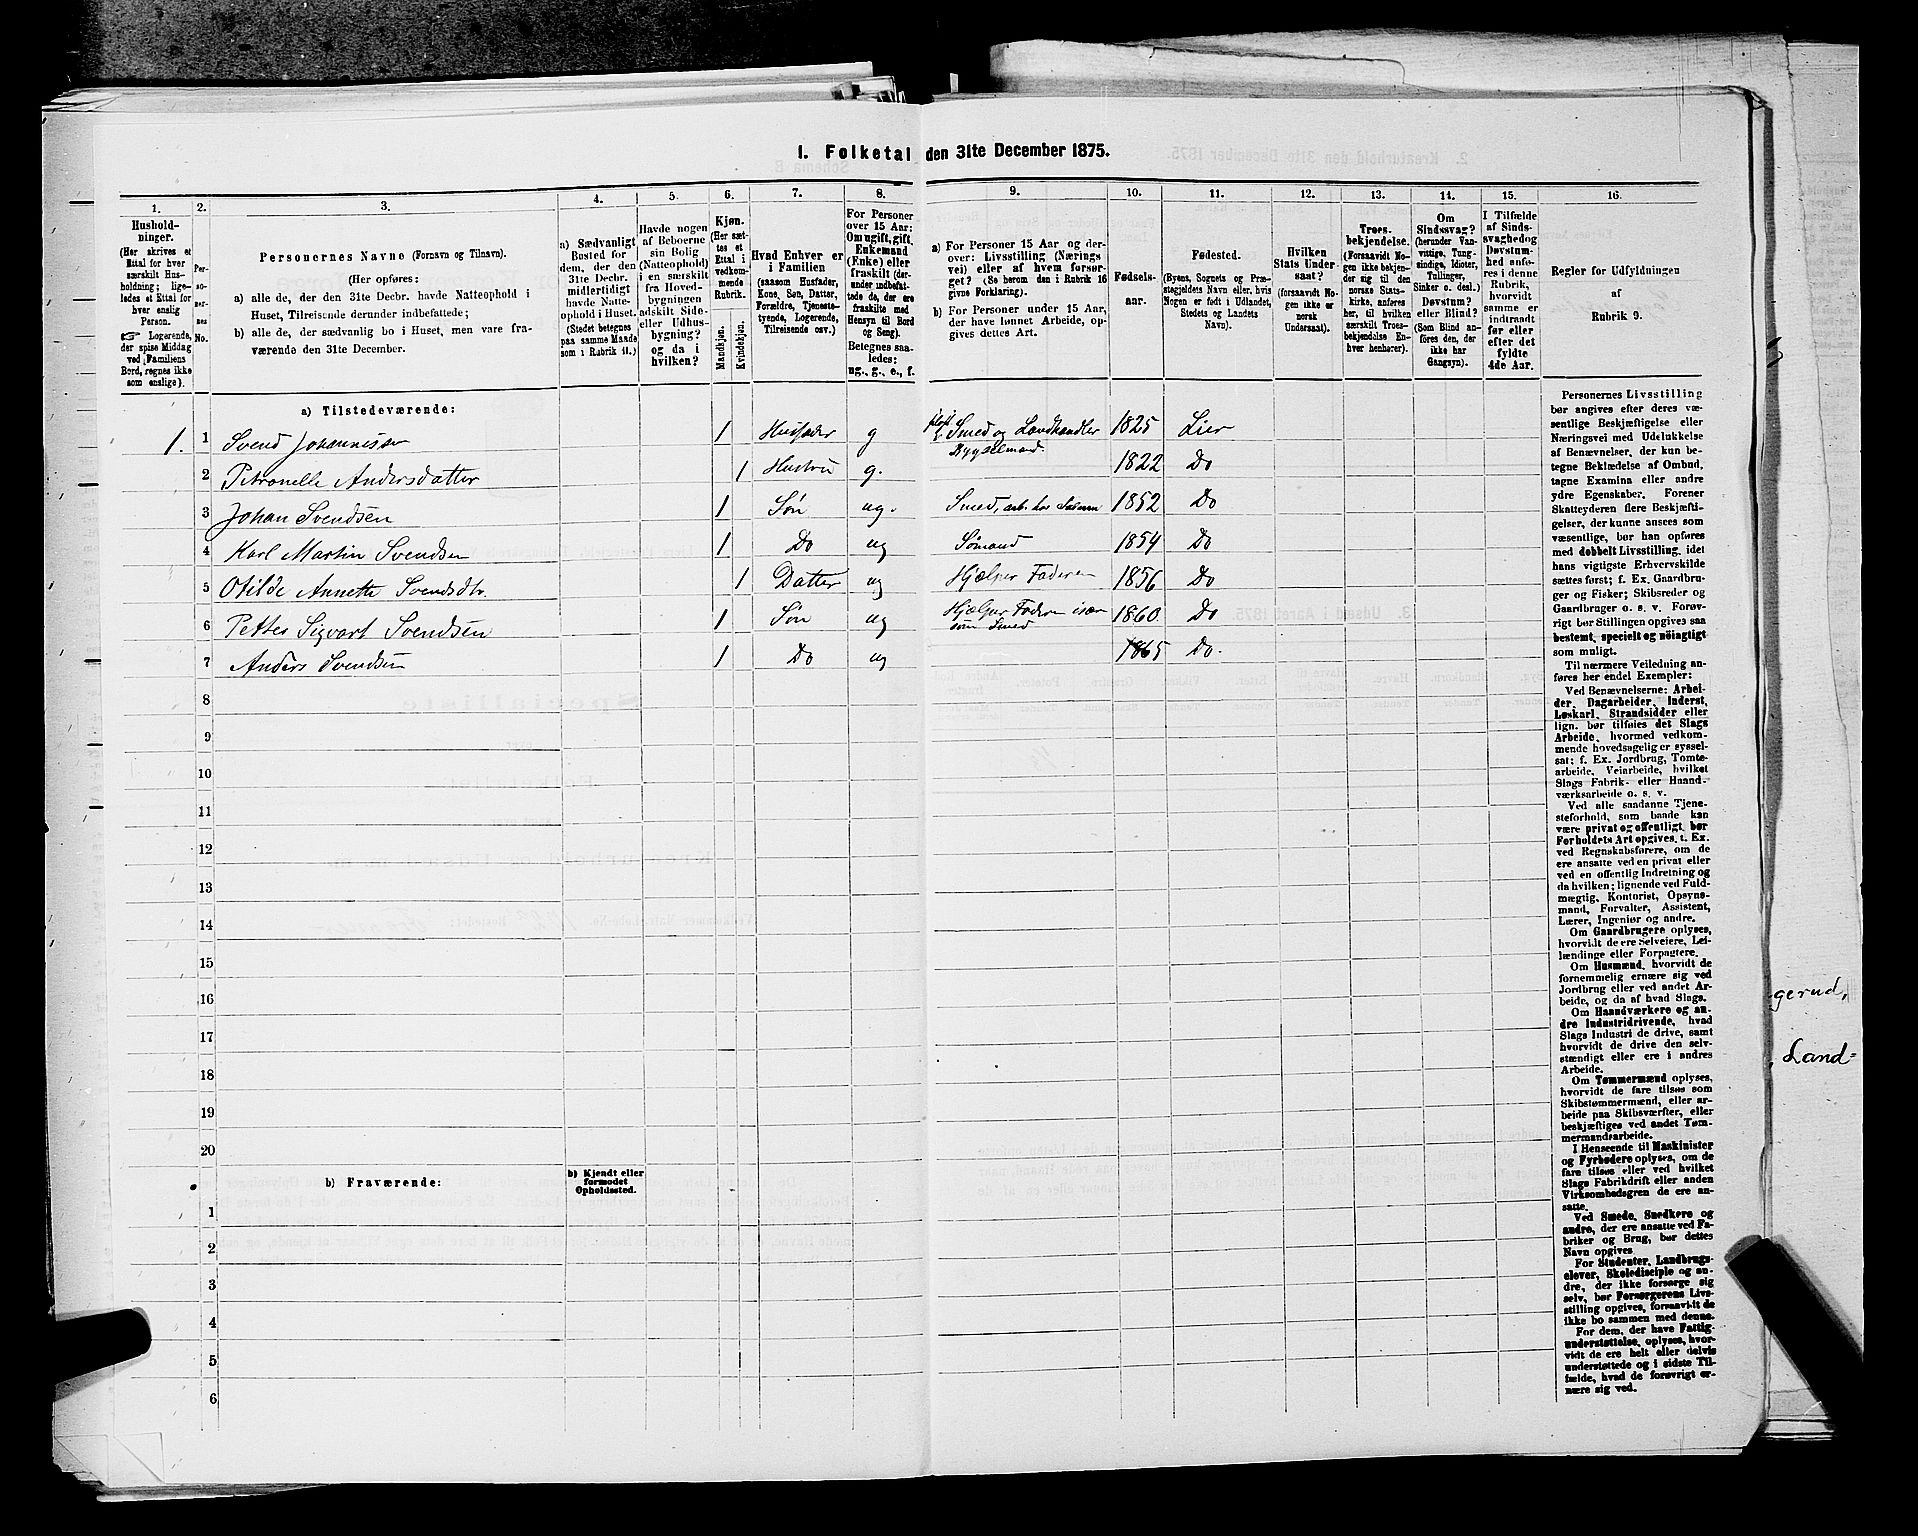 I. Folketal den 31te December 1875.
1. 2. 3. 4. 5. 6. 7. 8. 9. 10. 11. 12. 13. 14. 15. 16.
Hushold-
ninger.
(Her skrives et
Ettal for hver
særskilt Hus-
holdning; lige-
ledes et Ettal for
hver enslig
Person.
☞ Logerende,
der spise Middag
ved Familiens
Bord, regnes ikke
som enslige).
Per-
so-
ner-
nes
No.
Personernes Navne (Fornavn og Tilnavn).
(Her opføres:
a) alle de, der den 31te Decbr. havde Natteophold i
Huset, Tilreisende derunder indbefattede;
b) alle de, der sædvanlig bo i Huset, men vare fra-
værende den 31te December.
a) Sædvanligt
Bosted for
dem, der den
31te Decbr.
midlertidigt
havde Natte-
ophold i Huset.
(Stedet betegnes
paa samme Maade
som i Rubrik 11.)
Havde nogen
af Beboerne
sin Bolig
(Natteophold)
i en særskilt
fra Hoved-
bygningen
adskilt Side-
eller Udhus-
bygning?
og da i
hvilken?
Kjøn.
(Her sæt-
tes et
Ettal i
vedkom-
mende
Rubrik.
Mandkjøn.
Kvindekjøn.
Hvad Enhver er
i Familien
(saasom Husfader,
Kone, Søn, Datter,
Forældre, Tjeneste-
tyende, Logerende,
Tilreisende osv.)
For Personer
over 15 Aar:
Om ugift, gift,
Enkemand
(Enke) eller
fraskilt (der-
under indbefat-
tede de, der ere
fraskilte med
Hensyn til Bord
og Seng).
Betegnes saa-
ledes:
ug., g., e., f.
a) For Personer 15 Aar og der-
over: Livsstilling (Nærings
vei) eller af hvem forsør-
get? (Se herom den i Rubrik 16
givne Forklaring).
b) For Personer under 15 Aar,
der have lønnet Arbeide, op-
gives dettes Art.
Fødsels-
aar.
Fødested.
(Byens, Sognets og Præ-
stegjeldets Navn eller, hvis
Nogen er født i Udlandet,
Stedets og Landets
Navn).
Hvilken
Stats Under-
saat?
(forsaavidt No-
gen ikke er
norsk
Undersaat).
Troes-
bekjendelse.
(Forsaavidt No-
gen ikke bekjen-
der sig til den
norske Stats-
kirke, anføres
her, til hvilken
særskilt Troes-
bekjendelse En-
hver henhører).
Om
Sindssvag?
(herunder Van-
vittige, Tung-
sindige, Idioter,
Tullinger,
Sinker o. desl.)
Døvstum?
eller Blind?
(Som Blind an-
føres den, der
ikke har
Gangsyn).
I Tilfælde
af Sinds-
svaghed og
Døvstum-
hed anfø-
res i denne
Rubrik,
hvorvidt
samme er
indtraadt
før eller
efter det
fyldte
4de Aar.
Regler for Udfyldningen
af
Rubrik 9.
a) Tilstedeværende:
1. 1 Svend Johannessen 1 Husfader g Smed og Landhandler 1825 Lier
Bygselmand.
2 Petronelle Andersdatter 1 Hustru g. 1822 Do
3 Johan Svendsen 1 Søn ug. Smed, arb. hos 1852 Do
4 Karl Martin Svendsen 1 Do ug Sømand 1854 Do
5 Otilde Annette Svendsdtr. 1 Datter ug Hjælper Faderen 1856 Do
6 Petter Sigvart Svendsen 1 Søn ug Hjælper Faderen især 1860. Do
som Smed
7 Anders Svendsen 1 Do ug 1865 Do.
8
9
10
11
12
13
14
15
16
17
18
19
20
b) Fraværende:
b) Kjendt eller
formodet
Opholdssted.
1
2
3
4
5
6
Personernes Livsstilling
bør angives efter deres væ-
sentlige Beskjæftigelse eller
Næringsvei med Udelukkelse
af Benævnelser, der kun be-
tegne Beklædelse af Ombud,
tagne Examina eller andre
ydre Egenskaber. Forener
Skatteyderen flere Beskjæfti-
gelser, der kunne ansees som
væsentlige, bør han opføres
med dobbelt Livsstilling, idet
hans vigtigste Erhvervskilde
sættes først; f. Ex. Gaardbru-
ger og Fisker; Skibsreder og
Gaardbruger o. s. v. Forøv-
rigt bør Stillingen opgives saa
bestemt, specielt og nöiagtigt
som muligt.
Til nærmere Veiledning an-
føres her endel Exempler:
Ved Benævnelserne: Arbei-
der, Dagarbeider, Inderst,
Løskarl, Strandsidder eller
lign. bør tilføies det Slags
Arbeide, hvormed vedkom-
mende hovedsagelig er syssel-
sat; f. Ex. Jordbrug, Tomte-
arbeide, Veiarbeide, hvilket
Slags Fabrik- eller Haand-
værksarbeide o. s. v.
Ved alle saadanne Tjene-
steforhold, som baade kan
være privat og offentligt, bør
Forholdets Art opgives, t. Ex.
ved Regnskabsførere, om de
ere ansatte ved en privat eller
ved en offentlig Indretning og
da hvilken; lignende ved Fuld-
mægtig, Kontorist, Opsyns-
mand, Forvalter, Assistent,
Lærer, Ingeniør og andre.
Om Gaardbrugere oplyses,
hvorvidt de ere Selveiere, Lei-
lændinge eller Forpagtere.
Om Husmænd, hvorvidt de
fornemmelig ernære sig ved
Jordbrug eller ved andet Ar-
beide, og da af hvad Slags.
Om Haandværkere og an-
dre Industridrivende, hvad
Slags Industri de drive, samt
hvorvidt de drive den selv-
stændigt eller ere i andres
Arbeide.
Om Tømmermænd oplyses,
hvorvidt de fare tilsøs som
Skibstømmermænd, eller ar-
beide paa Skibsværfter, eller
beskjæftiges ved andet Tøm-
mermandsarbeide.
I Henseende til Maskinister
og Fyrbødere oplyses, om de
fare tilsøs eller ved hvilket
Slags Fabrikdrift eller anden
Virksombedsgren de ere an-
satte.
Ved Smede, Snedkere og
andre, der ere ansatte ved Fa-
briker og Brug, bør dettes
Navn opgives.
For Studenter, Landbrugs-
elever, Skoledisciple og an-
dre, der ikke forsørge sig
selv, bør Forsørgerens Livs-
stilling opgives, forsaavidt de
ikke bo sammen med denne.
For dem, der have Fattig-
understøttelse, oplyses, hvor-
vidt de ere helt eller delvis
understøttede og i sidste Til-
fælde, hvad de forøvrigt er-
nære sig ved.
gerud,
Land=